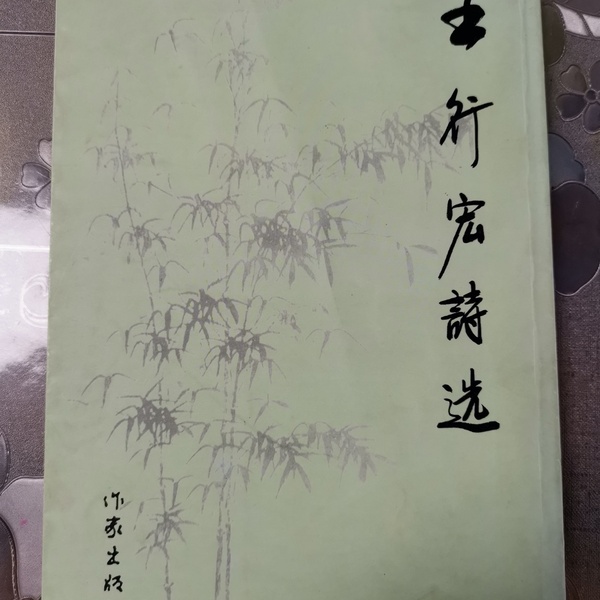 行宏詩选
作家出版